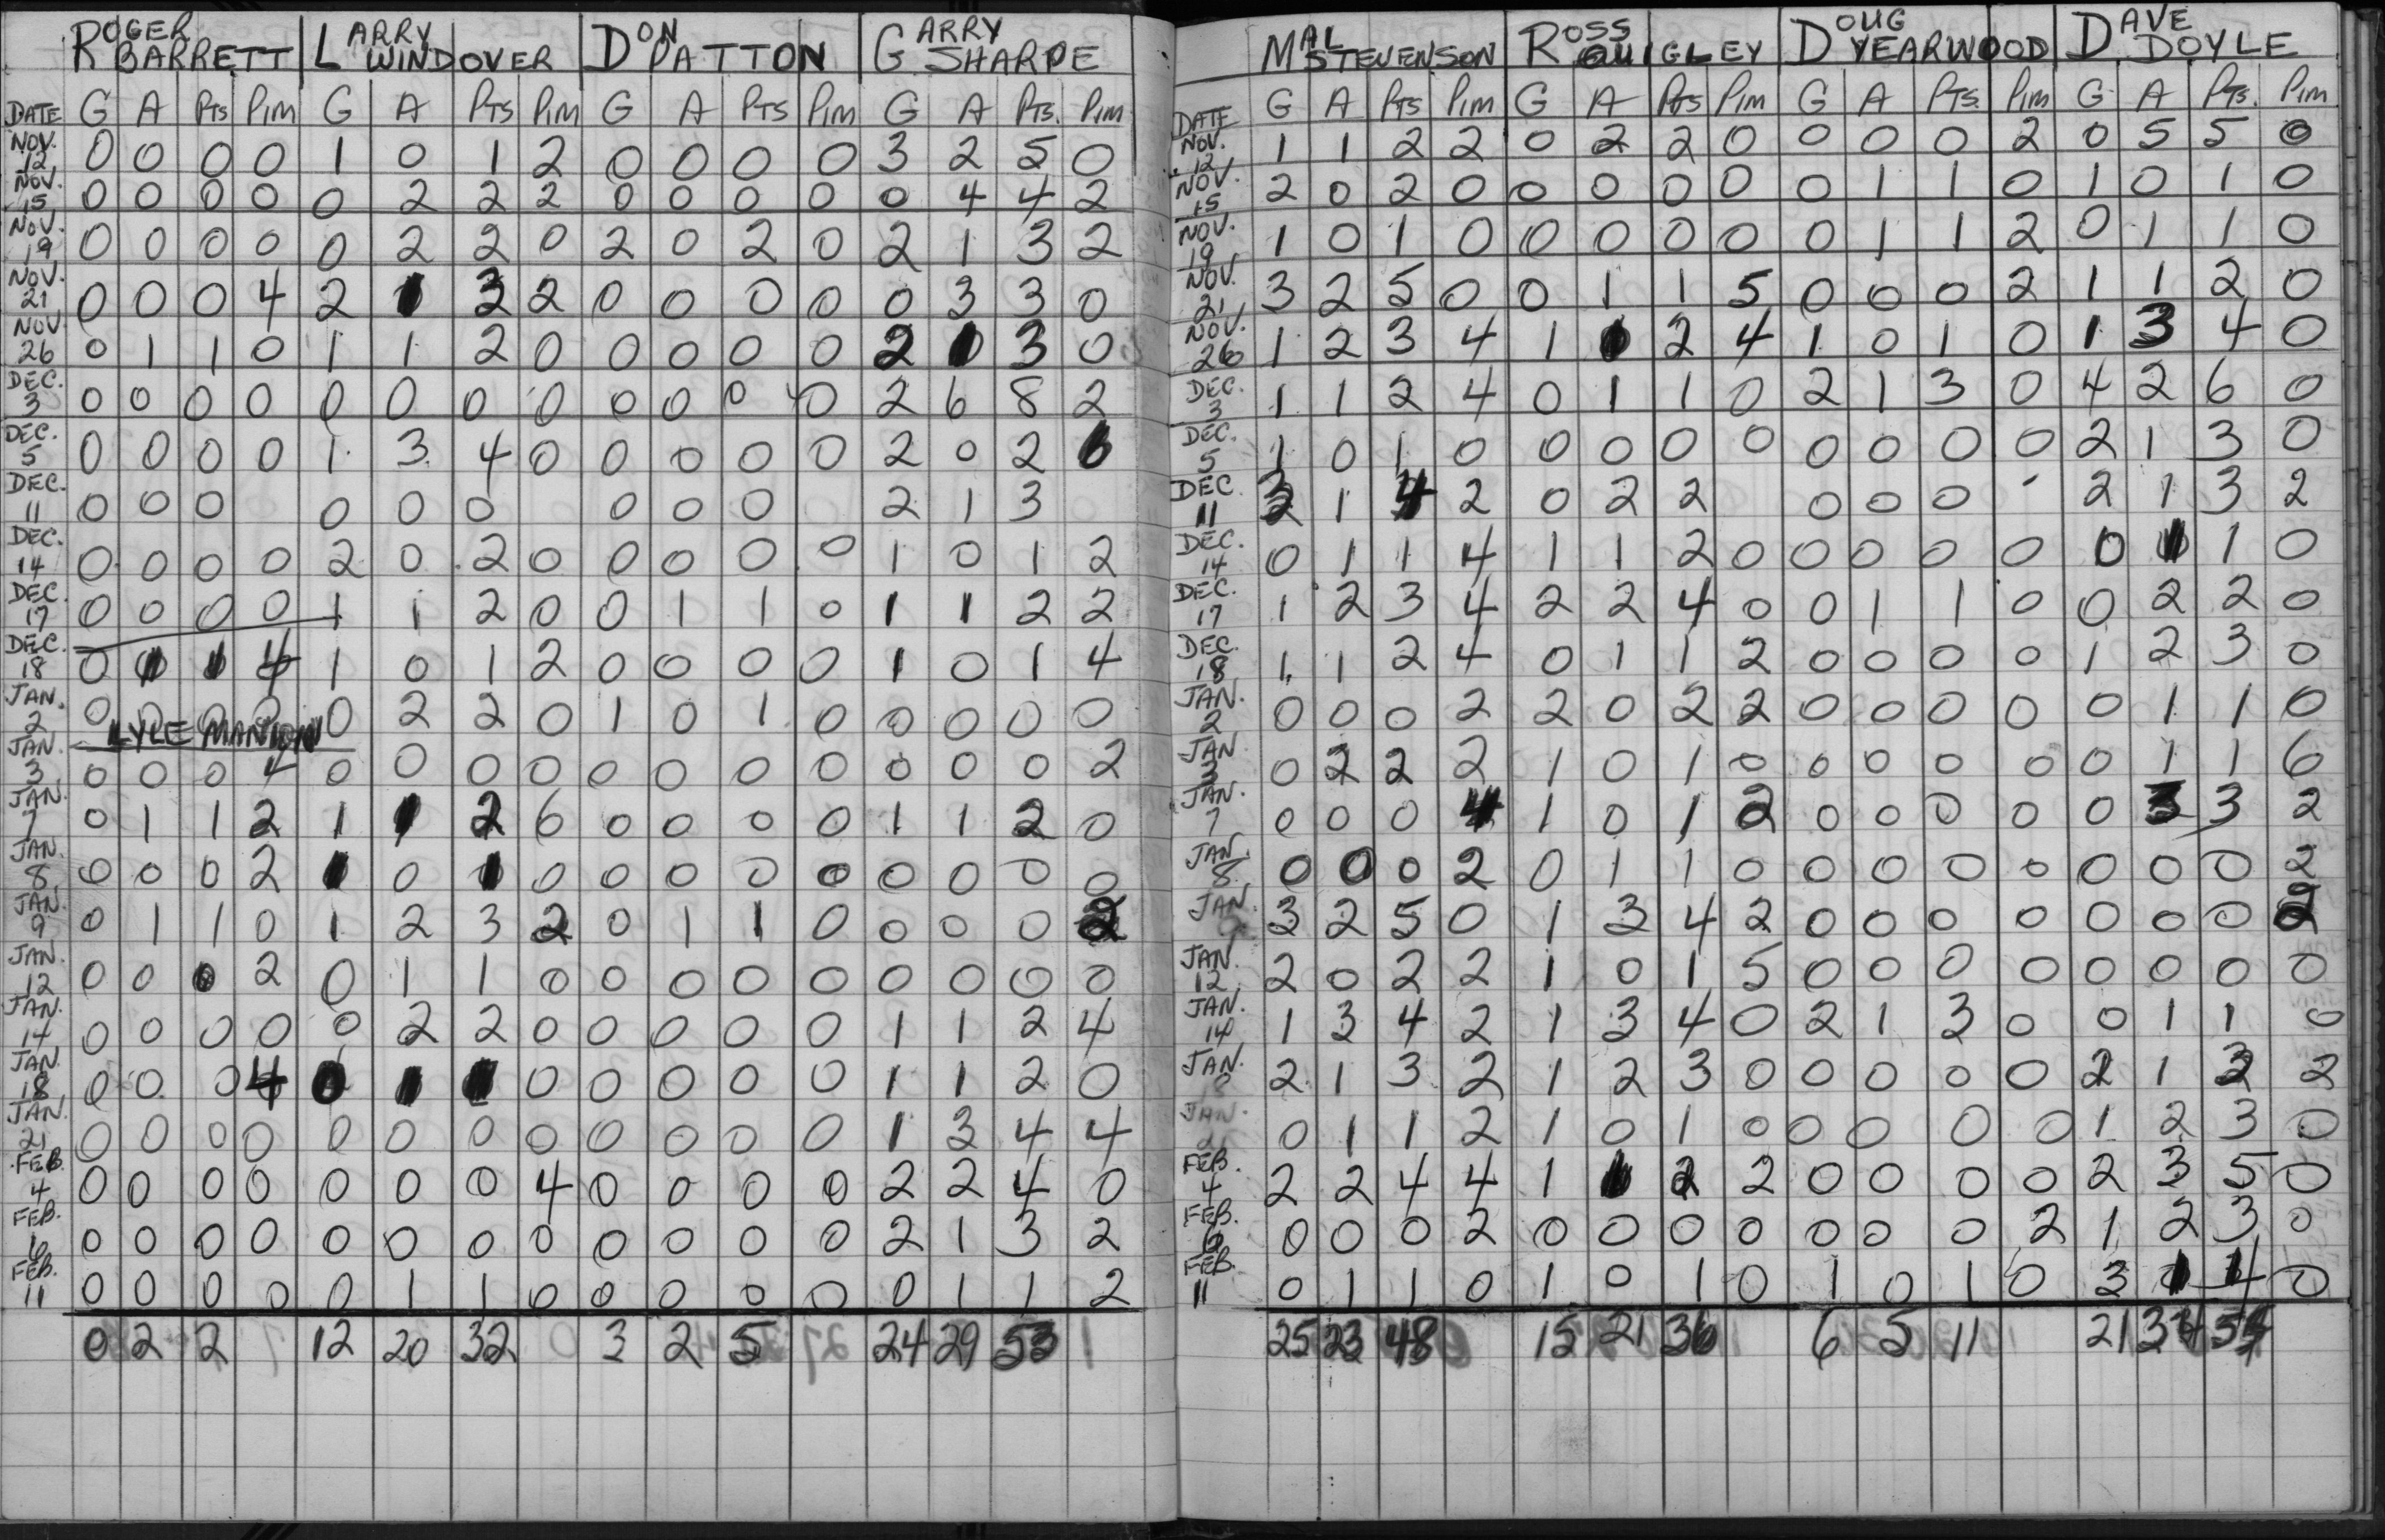 ROGER BARRETT LARRY WINDOVER DON PATTON GARRY SHARPE
DATE G A PTS PIM G A PTS PIM G A PTS PIM G A PTS. PIM
NOV. 12 0 0 0 0 1 0 1 2 0 0 0 0 3 2 5 0
NOV. 15 0 0 0 0 0 2 2 2 0 0 0 0 0 4 4 2
NOV. 19 0 0 0 0 0 2 2 0 2 0 2 0 2 1 3 2
NOV. 21 0 0 0 4 2 1 3 2 0 0 0 0 0 3 3 0
NOV 26 0 1 1 0 1 1 2 0 0 0 0 0 2 1 3 0
DEC. 3 0 0 0 0 0 0 0 0 0 0 0 0 2 6 8 2
DEC. 5 0 0 0 0 1 3 4 0 0 0 0 0 2 0 2 6
DEC. 11 0 0 0 0 0 0 0 0 0 2 1 3
DEC. 14 0 0 0 0 2 0 2 0 0 0 0 0 1 0 1 2
DEC. 17 0 0 0 0 1 1 2 0 0 1 1 0 1 1 2 2
DEC. 18 0 1 1 4 1 0 1 2 0 0 0 0 1 0 1 4
JAN. 2 0 0 0 0 0 2 2 0 1 0 1 0 0 0 0 0
LYLE MANION
JAN. 3 0 0 0 4 0 0 0 0 0 0 0 0 0 0 0 2
JAN. 7 0 1 1 2 1 1 2 6 0 0 0 0 1 1 2 0
JAN. 8 0 0 0 2 1 0 1 0 0 0 0 0 0 0 0 0
JAN. 9 0 1 1 0 1 2 3 2 0 1 1 0 0 0 0 2
JAN. 12 0 0 0 2 0 1 1 0 0 0 0 0 0 0 0 0
JAN. 14 0 0 0 0 0 2 2 0 0 0 0 0 1 1 2 4
JAN. 18 0 0 0 4 0 1 1 0 0 0 0 0 1 1 2 0
JAN. 21 0 0 0 0 0 0 0 0 0 0 0 0 1 3 4 4
FEB. 4 0 0 0 0 0 0 0 4 0 0 0 0 2 2 4 0
FEB. 6 0 0 0 0 0 0 0 0 0 0 0 0 2 1 3 2
FEB. 11 0 0 0 0 0 1 1 0 0 0 0 0 0 1 1 2
0 2 2 12 20 32 3 2 5 24 29 53
MAL STEVENSON ROSS QUIGLEY DOUG YEARWOOD DAVE DOYLE
DATE G A PTS PIM G A PTS PIM G A PTS. PIM G A PTS. PIM
NOV. 12 1 1 2 2 0 2 2 0 0 0 0 2 0 5 5 0
NOV. 15 2 0 2 0 0 0 0 0 0 1 1 0 1 0 1 0
NOV. 19 1 0 1 0 0 0 0 0 0 1 1 2 0 1 1 0
NOV. 21 3 2 5 0 0 1 1 5 0 0 0 2 1 1 2 0
NOV. 26 1 2 3 4 1 1 2 4 1 0 1 0 1 3 4 0
DEC. 3 1 1 2 4 0 1 1 0 2 1 3 0 4 2 6 0
DEC. 5 1 0 1 0 0 0 0 0 0 0 0 0 2 1 3 0
DEC. 11 3 1 4 2 0 2 2 0 0 0 2 1 3 2
DEC. 14 0 1 1 4 1 1 2 0 0 0 0 0 0 1 1 0
DEC. 17 1 2 3 4 2 2 4 0 0 1 1 0 0 2 2 0
DEC. 18 1 1 2 4 0 1 1 2 0 0 0 0 1 2 3 0
JAN. 2 0 0 0 2 2 0 2 2 0 0 0 0 0 1 1 0
JAN 3 0 2 2 2 1 0 1 0 0 0 0 0 0 1 1 6
JAN. 7 0 0 0 4 1 0 1 2 0 0 0 0 0 3 3 2
JAN. 8 0 0 0 2 0 1 1 0 0 0 0 0 0 0 0 2
JAN. 3 2 5 0 1 3 4 2 0 0 0 0 0 0 0 2
JAN. 12 2 0 2 2 1 0 1 5 0 0 0 0 0 0 0 0
JAN. 14 1 3 4 2 1 3 4 0 2 1 3 0 0 1 1 0
JAN. 2 1 3 2 1 2 3 0 0 0 0 0 2 1 3 2
JAN. 0 1 1 2 1 0 1 0 0 0 0 0 1 2 3 0
FEB. 4 2 2 4 4 1 1 2 2 0 0 0 0 2 3 5 0
FEB. 6 0 0 0 2 0 0 0 0 0 0 0 2 1 2 3 0
FEB. 11 0 1 1 0 1 0 1 0 1 0 1 0 3 1 4 0
25 23 48 15 21 36 6 5 11 21